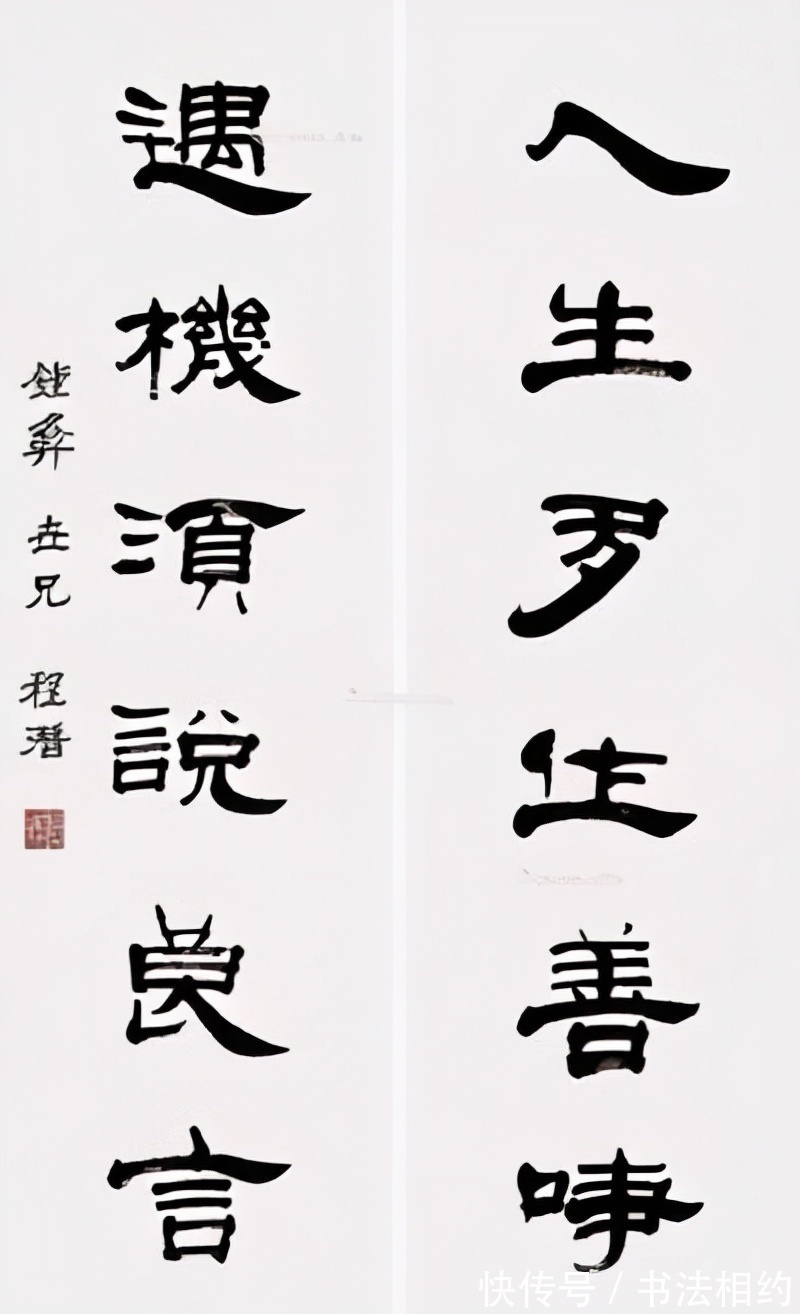 人生多作善事
遇機須說良言
世兄 程潛
快传号 / 书法相约